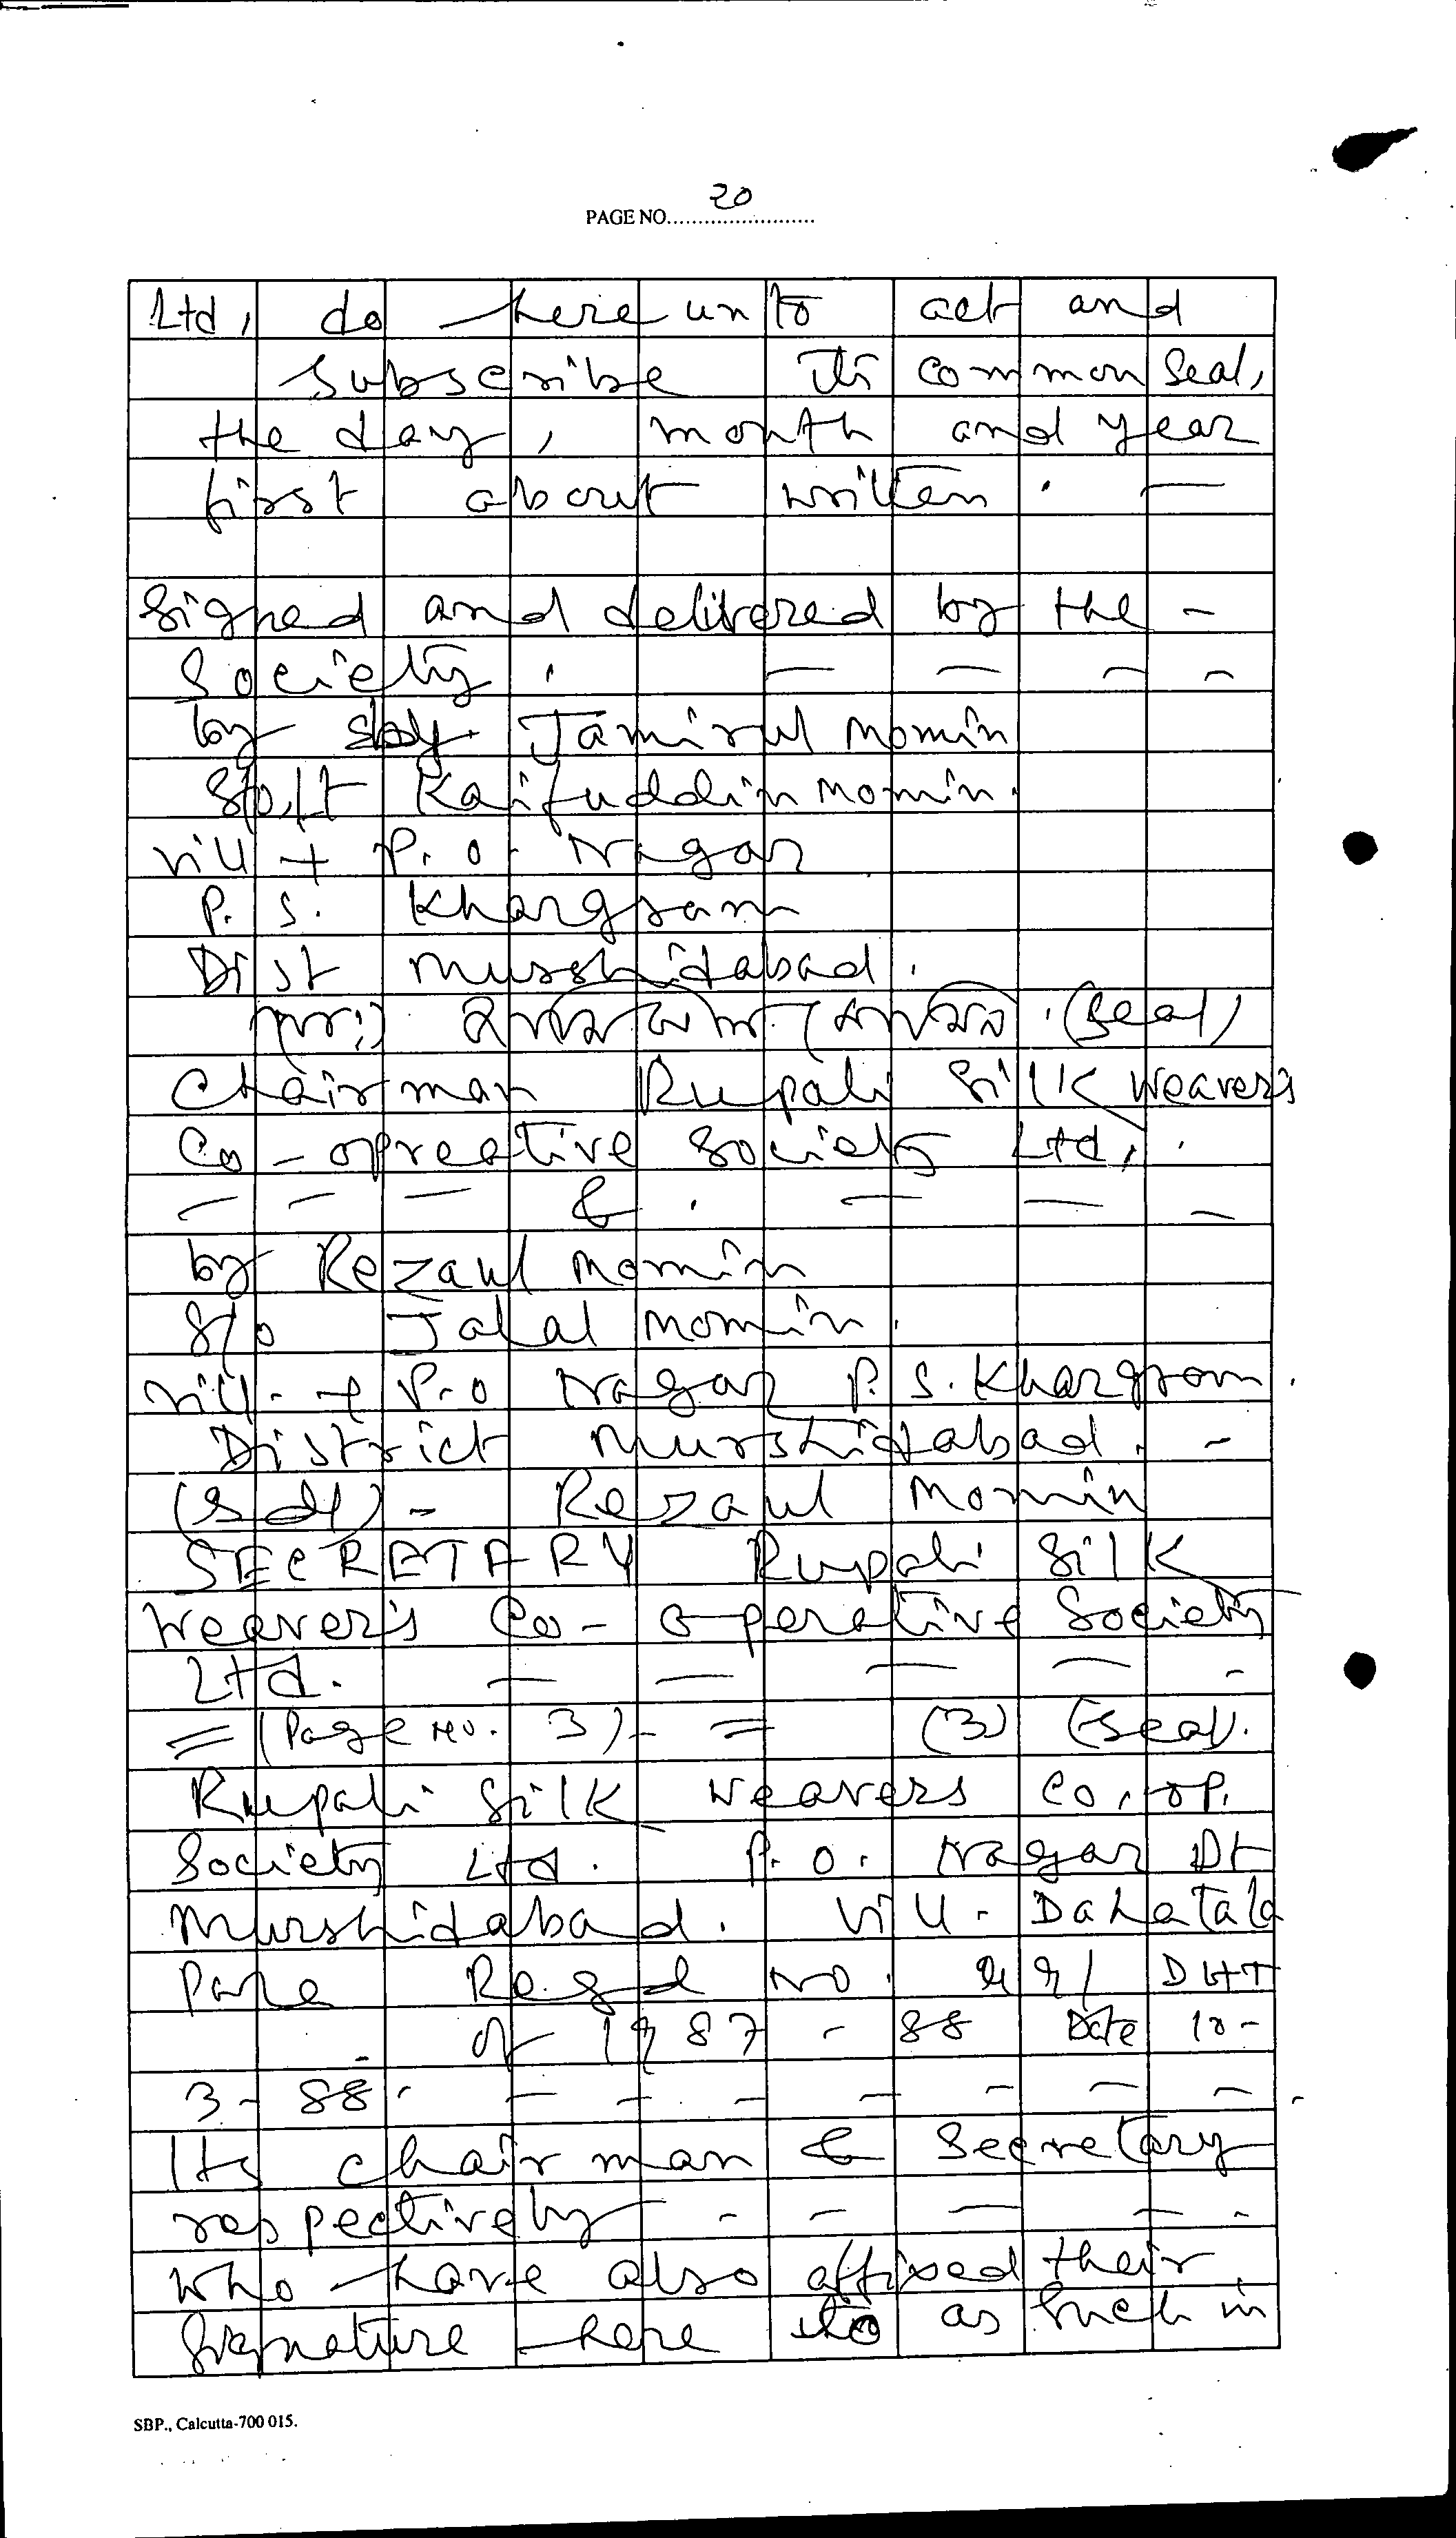 20
PAGE NO........................
Ltd, do here unto act and
Subscribe its common Seal,
the day, month and year
first about written. —
Signed and delivered by the -
Society. — — - -
by Jamirul Momin
S/o, Lt Kaifuddin Momin.
vill + P.O. Nagar
P.S. Khargram
Dist Murshidabad.
(Seal)
Chairman Rupali Silk Weaver's
Co-opreative Society Ltd,
— — — & . — — —
by Rezaul Momin
S/o Jalal Momin.
vill. + P.O Nagar P.S. Khargrom.
District Murshidabad. -
(Sd/) - Rezaul Momin
SECRETARY Rupali Silk
Weaver's Co-operative Society
Ltd. — — — — -
= (Page No. 3) - = (3) (Seal).
Rupali Silk Weavers Co, op.
Society Ltd. P.O. Nagar Dt
Murshidabad. Vill - Dahatala
Para Regd No. DHT
of 1987 - 88 Date 10-
3-88. — — — — — — —
Its chairman & Secretary
respectively - - — — -
who have also affixed their
Signature here to as Such in
SBP., Calcutta-700 015.